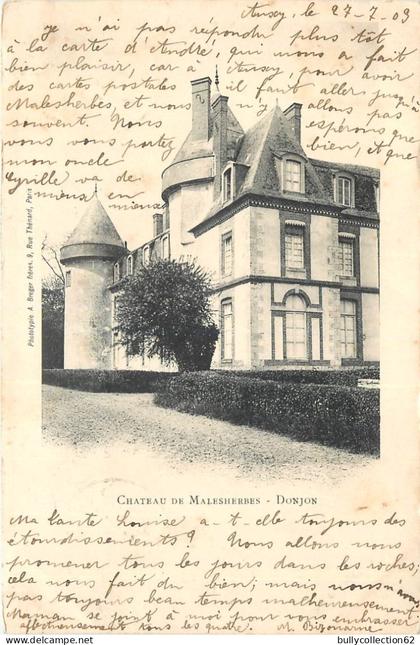 Auxy, le 27-7-03
je n'ai pas répondu plus tôt
à la carte d'André, qui nous a fait
bien plaisir, car à Auxy, pour avoir
des cartes postales il faut aller jusqu'à
Malesherbes, et nous n'y allons pas
souvent. Nous espérons que
vous vous portez bien, et que
mon oncle
Cyrille va de
mieux en
mieux
Phototypie A. Breger frères, 9, Rue Thénard, Paris
CHATEAU DE MALESHERBES - DONJON
Ma tante Louise a-t-elle toujours des
étourdissements? Nous allons nous
promener tous les jours dans les roches;
cela nous fait du bien; mais nous n'avons
pas toujours beau temps malheureusement
Maman se joint à moi pour vous embrasser
affectueusement tous les quatre. M.
bullycollection62